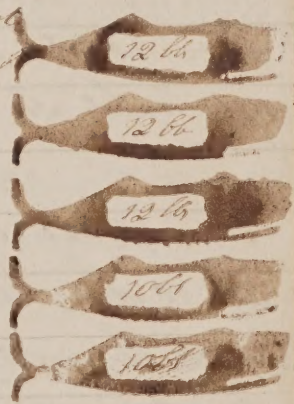 12 bb
12 bb
12 bb
10 bb
10 bb